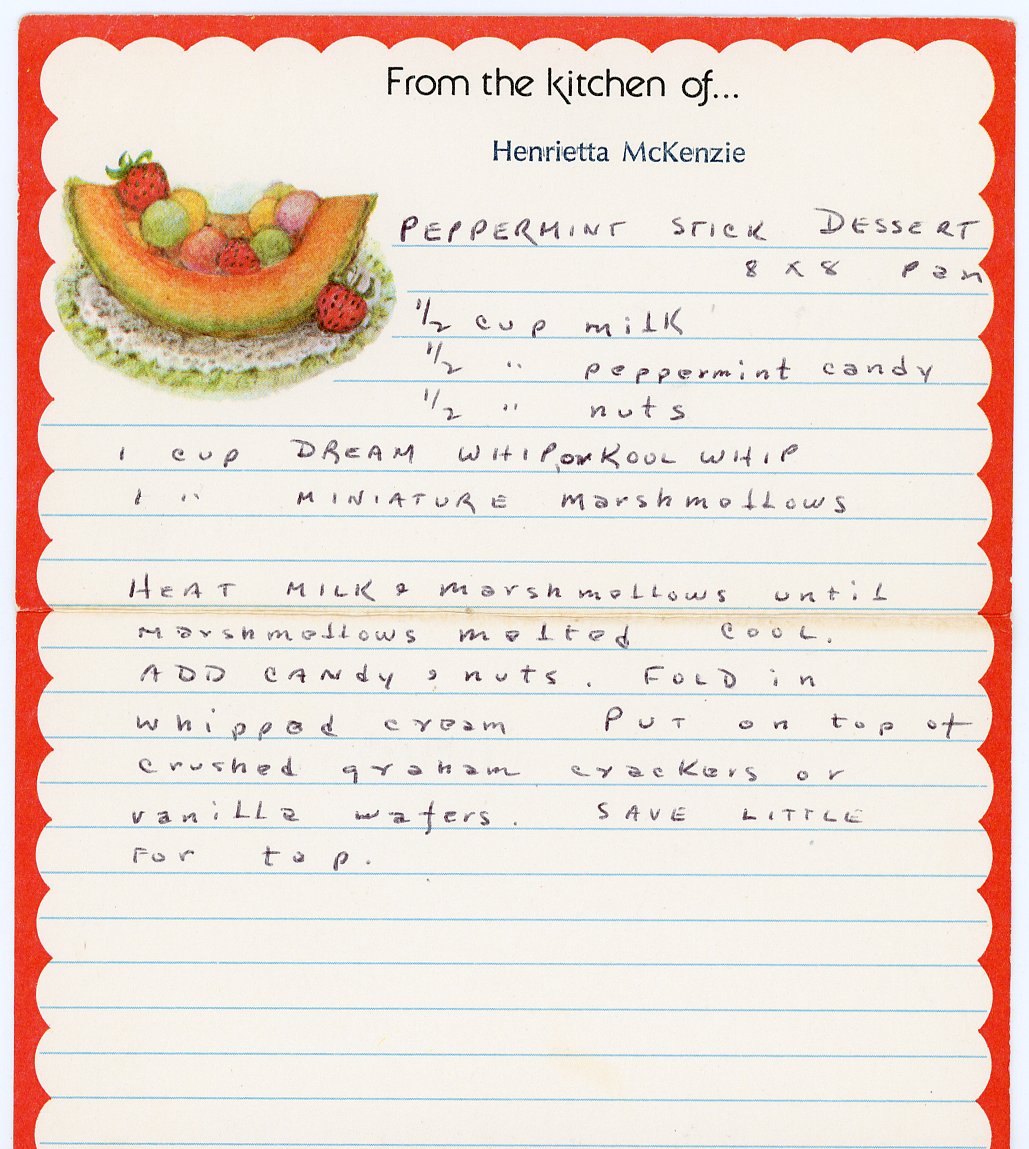 From the kitchen of...
Henrietta McKenzie
PEPPERMINT STICK DESSERT
8 X 8 Pan
1/2 cup milk
1/2 " peppermint candy
1/2 " nuts
1 cup DREAM WHIP, or KOOL WHIP
1 " MINIATURE marshmallows
HEAT MILK & marshmallows until
marshmallows melted COOL.
ADD CANdy & nuts. FOLD in
whipped cream PUT on top of
crushed graham crackers or
vanilla wafers. SAVE LITTLE
For top.